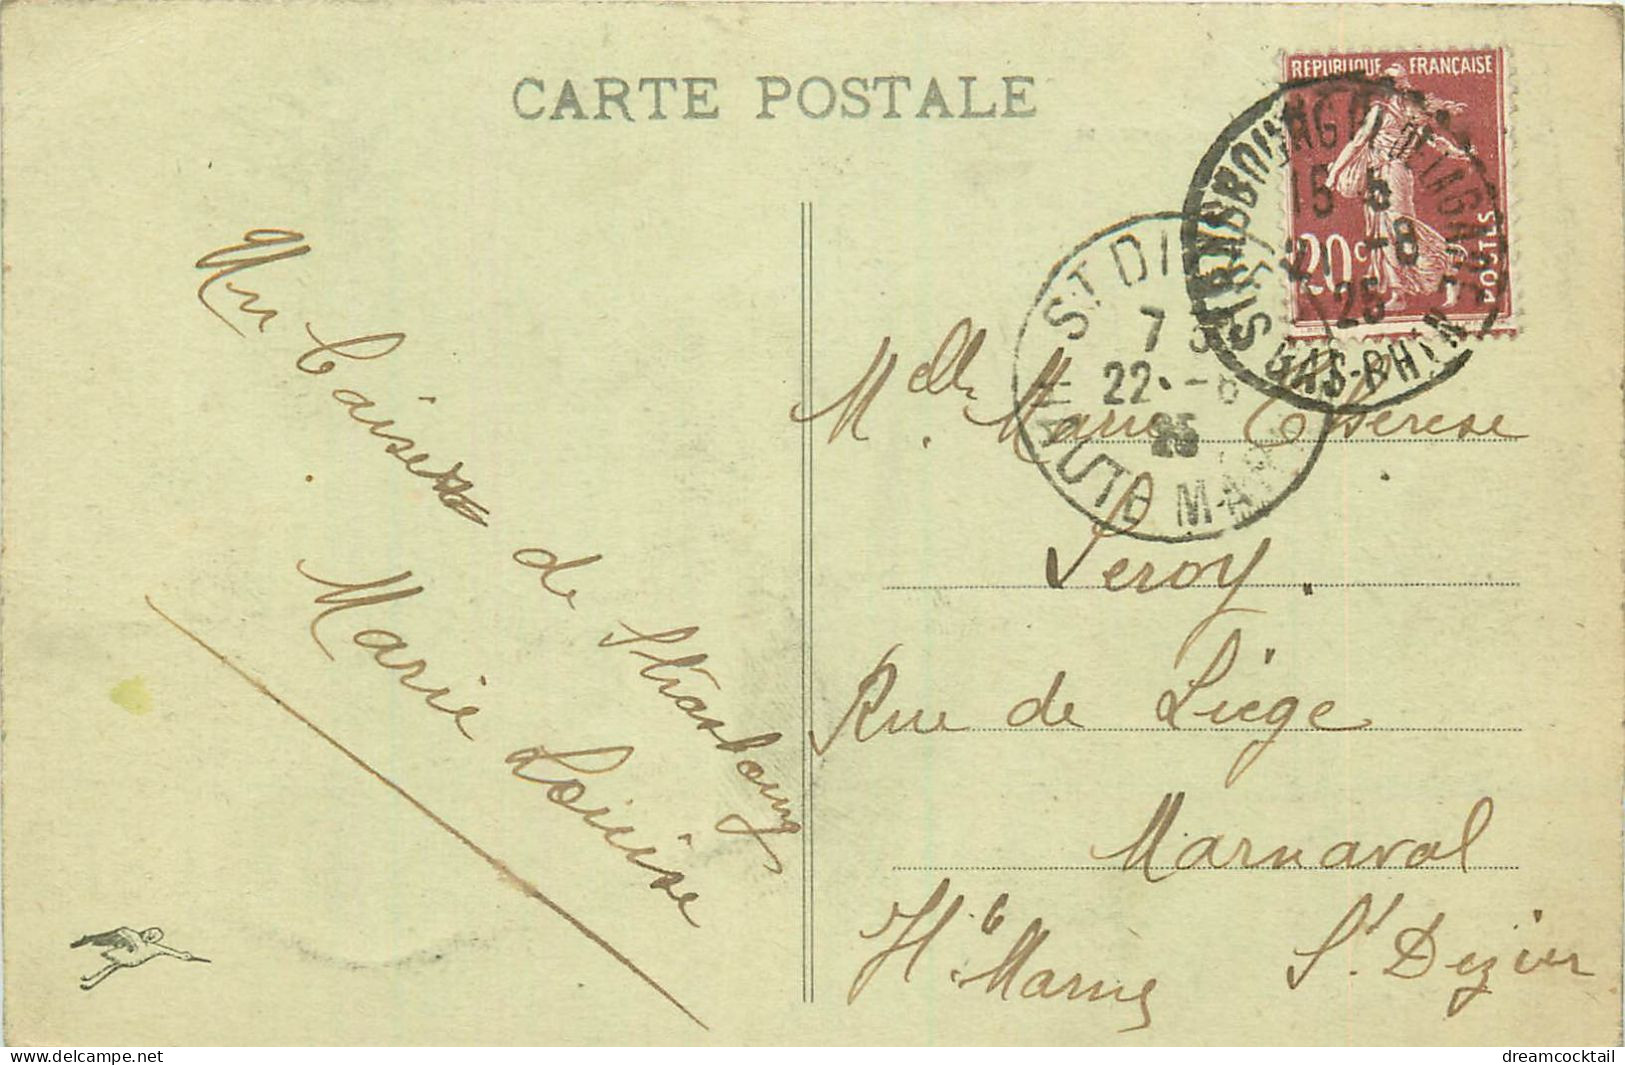 CARTE POSTALE
REPUBLIQUE FRANÇAISE
20c
POSTES
STRASBOURG
15
21 -8
25
BAS-RHIN
ST DIZIER
7
22 -8
25
HTE MARNE
Un baiser
de Strasbourg
Marie Louise
Melle Marie Thérèse
Leroy.
Rue de Liège
Marnaval
Hte Marne St Dizier
delcampe.net
dreamcocktail